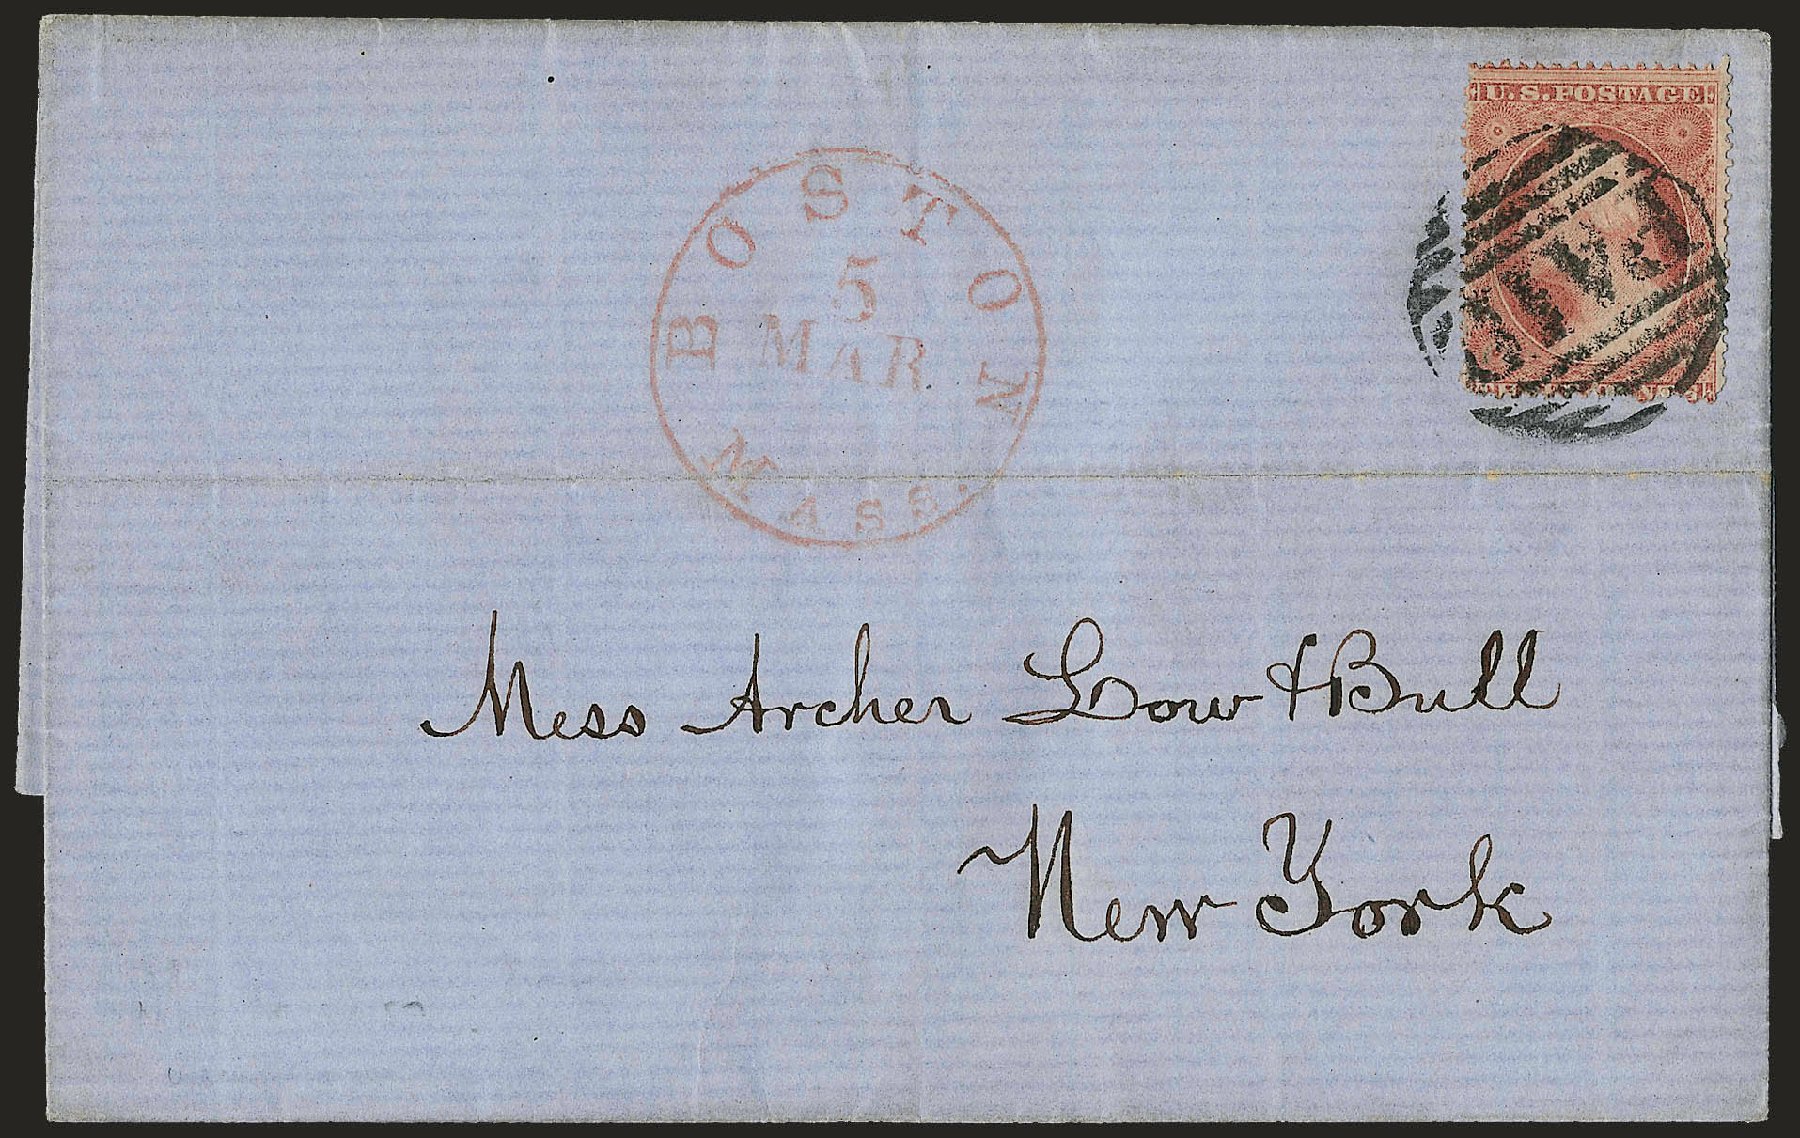 U.S. POSTAGE
BOSTON
5
MAR
MASS.
PAID
Mess Archer Low & Bull
New York